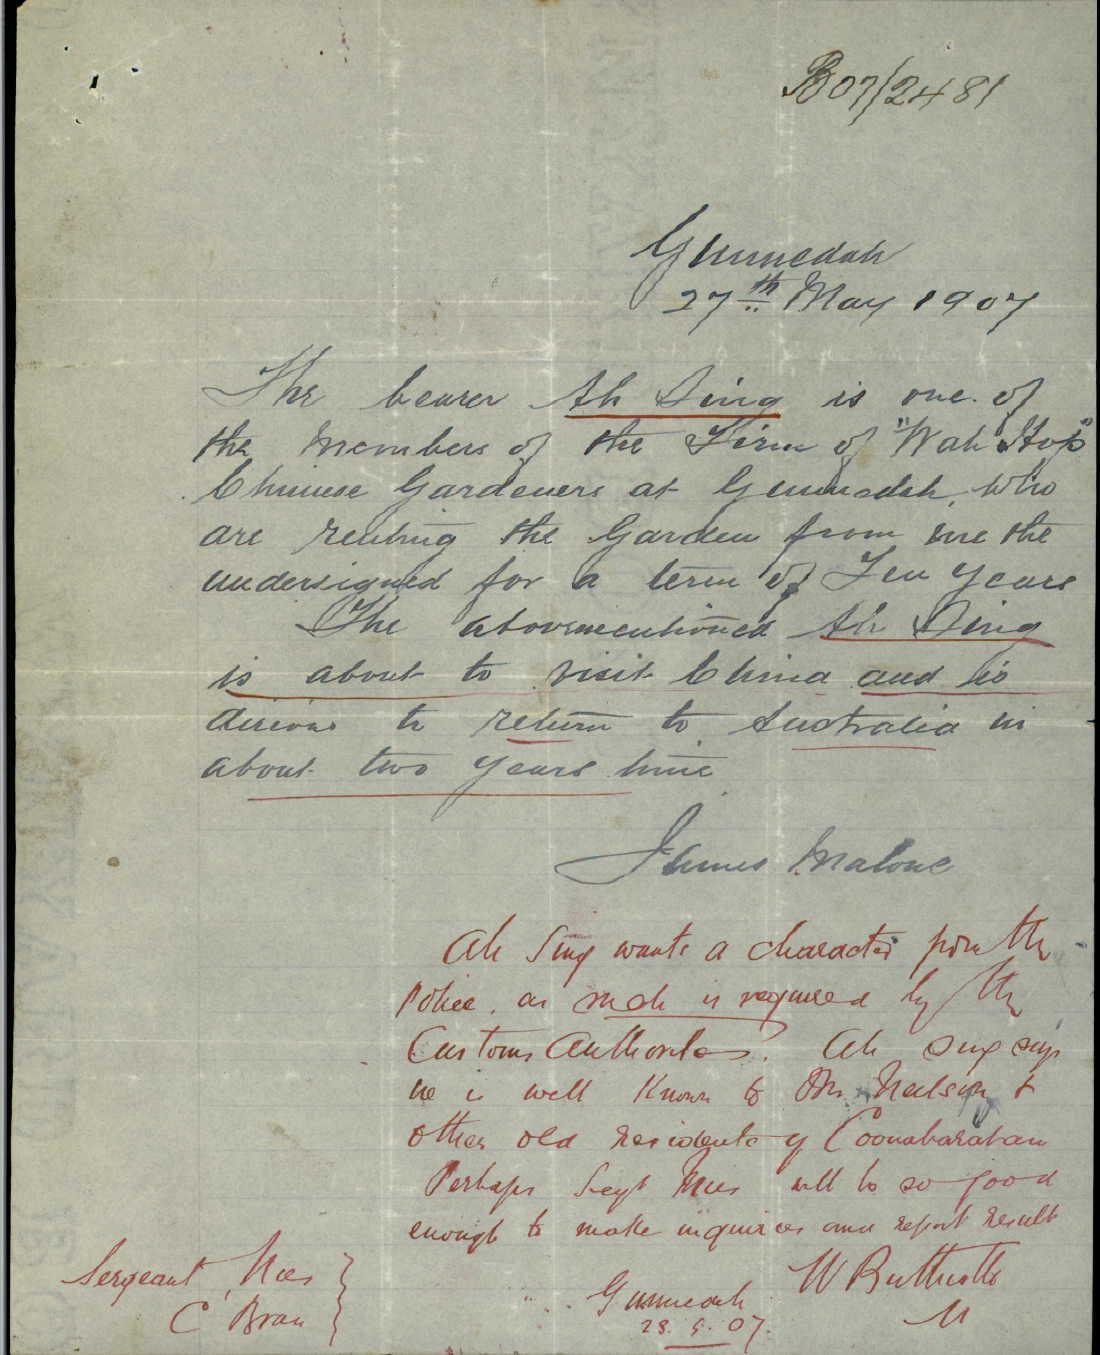 B07/2481
Gunnedah
27th May 1907
The bearer Ah Sing is one of
the members of the Firm of "Wah Hop"
Chinese Gardeners at Gunnedah, who
are renting the Garden from me the
undersigned for a term of Ten years
The abovementioned Ah Sing
is about to visit China and is
desirous to return to Australia in
about two years time
James Malone
Ah Sing wants a character from the
Police, as such is required by the
Customs Authorities. Ah Sing says
he is well known to Mr Neilson &
other old residents of Coonabarabran
Perhaps Sergt will be so good
enough to make inquiries and report result
Sergeant
C Bran
W
Gunnedah
28.5.07.